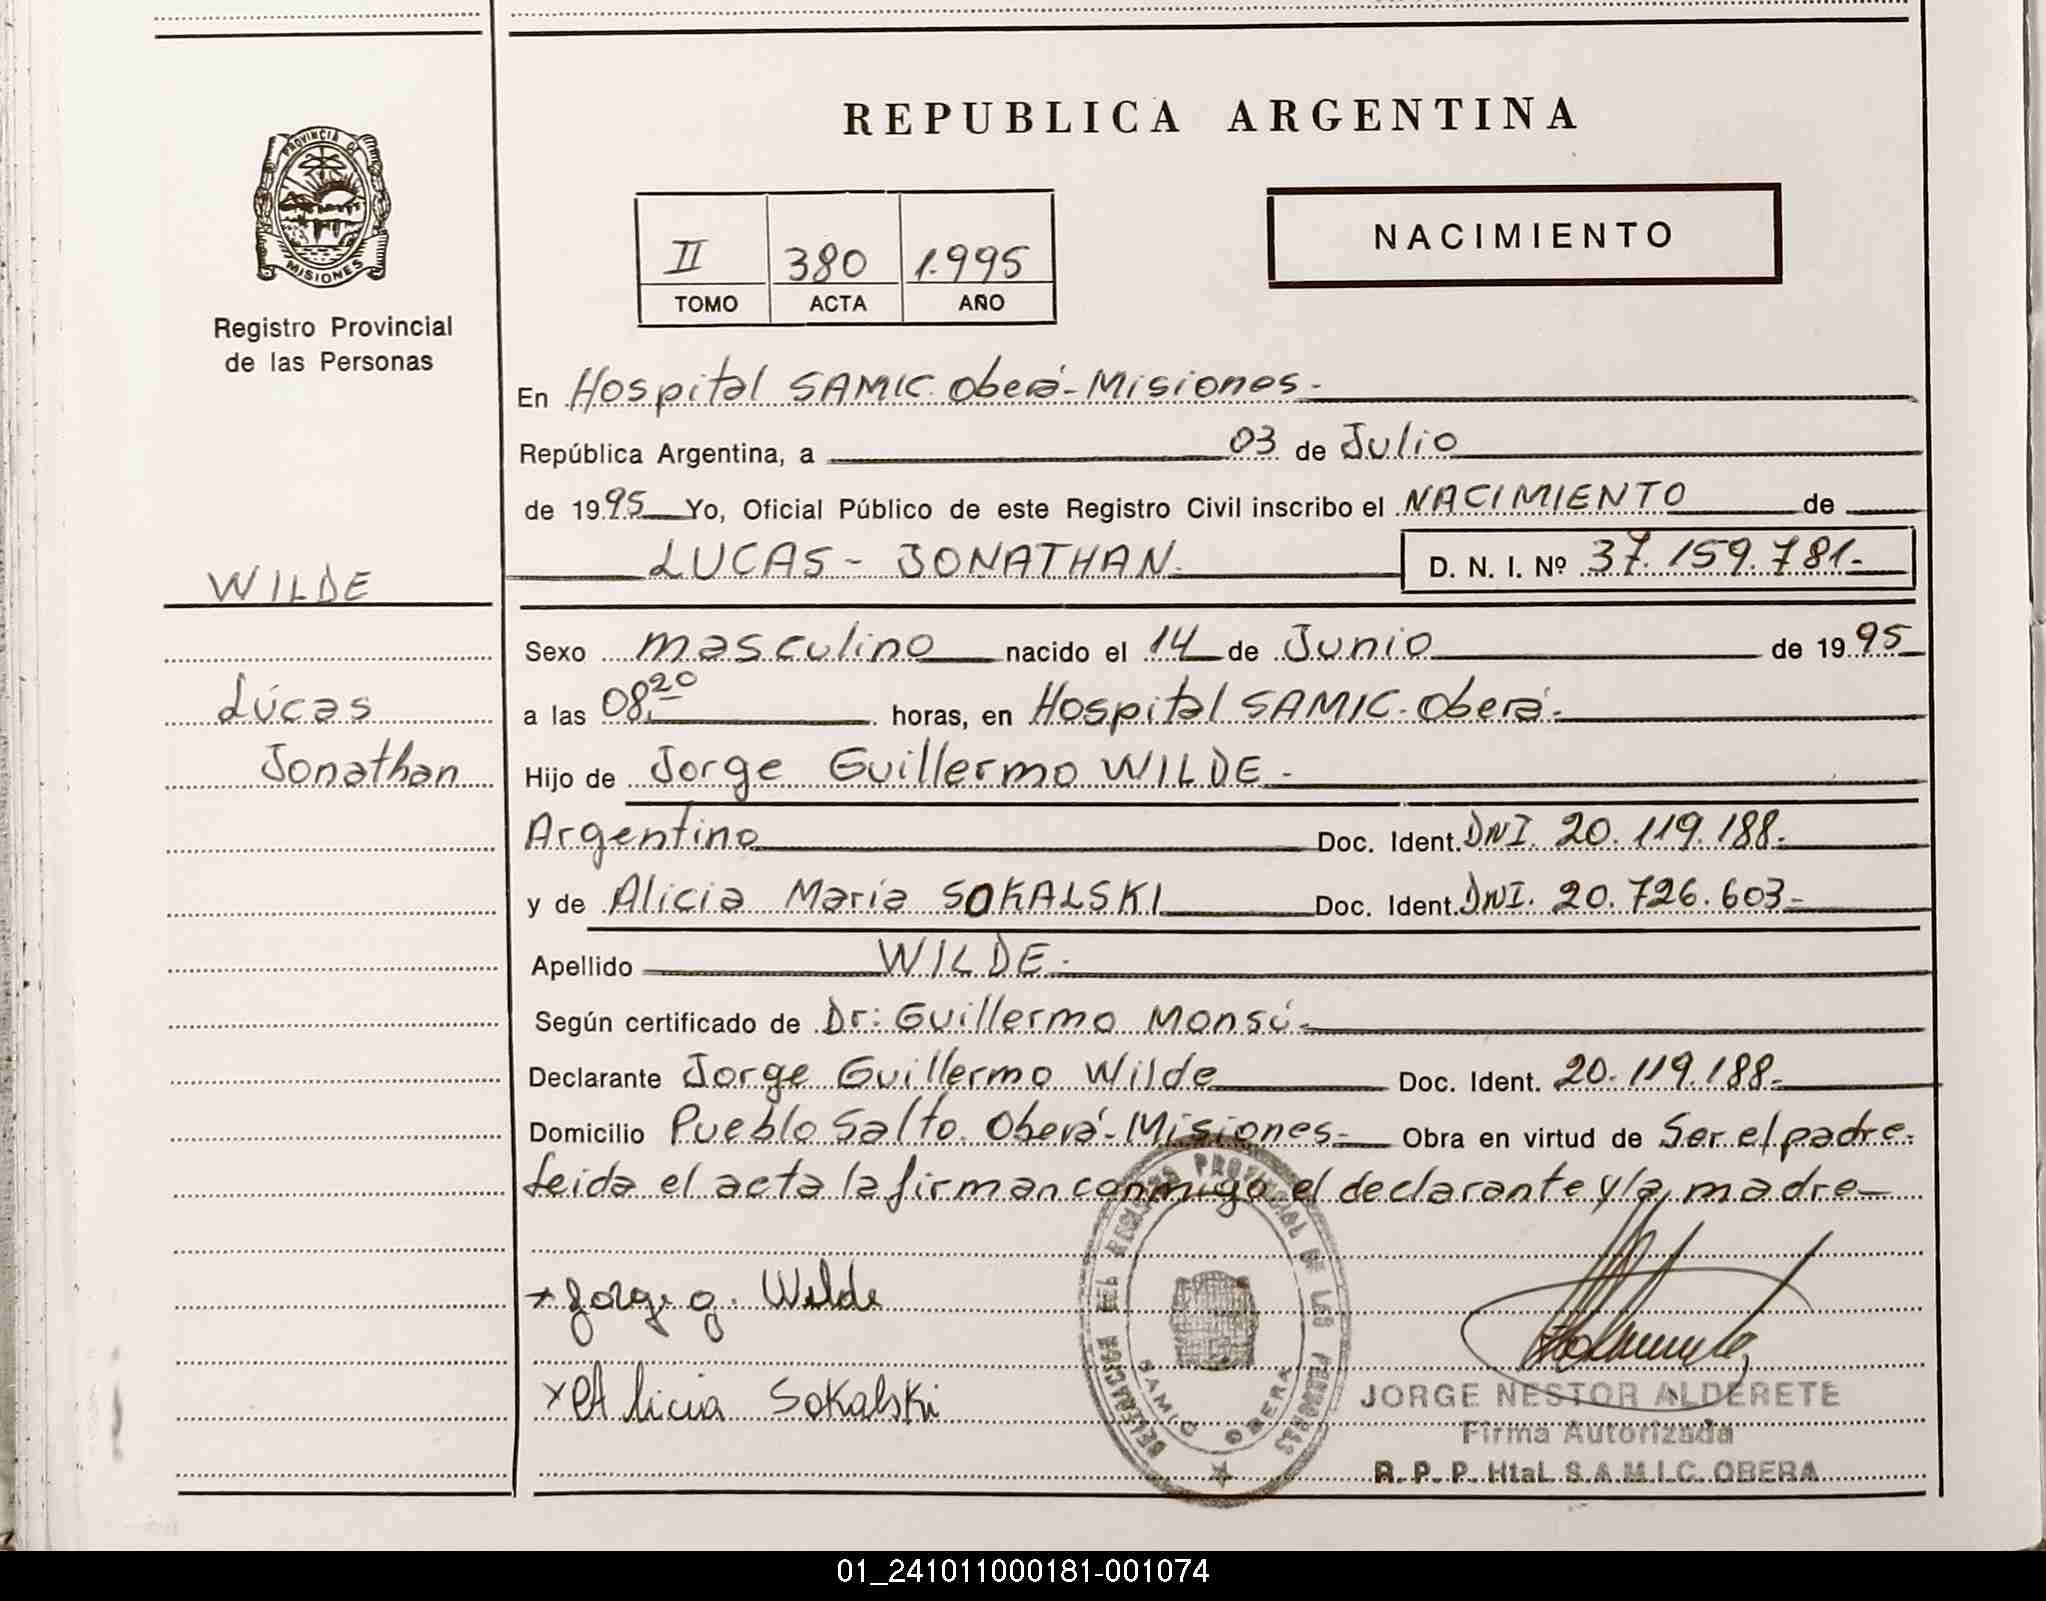 REPUBLICA ARGENTINA
PROVINCIA DE
MISIONES
Registro Provincial
de las Personas
II 380 1.995
TOMO ACTA AÑO
NACIMIENTO
En Hospital SAMIC. Oberá - Misiones -
República Argentina, a 03 de Julio
de 1995 Yo, Oficial Público de este Registro Civil inscribo el NACIMIENTO de
LUCAS - JONATHAN. D. N. I. Nº 37.159.781.-
WILDE
Lúcas
Jonathan
Sexo masculino nacido el 14 de Junio de 1995
a las 08,20 horas, en Hospital SAMIC. Oberá -
Hijo de Jorge Guillermo WILDE -
Argentino Doc. Ident. DNI. 20.119.188.-
y de Alicia María SOKALSKI Doc. Ident. DNI. 20.726.603-
Apellido WILDE -
Según certificado de Dr: Guillermo Monsú -
Declarante Jorge Guillermo Wilde Doc. Ident. 20.119.188-
Domicilio Pueblo Salto. Oberá - Misiones - Obra en virtud de Ser el padre.
Leida el acta la firman conmigo el declarante y la madre -
x Jorge g. Wilde
x Alicia Sokalski
DELEGACION DEL REGISTRO PROVINCIAL DE LAS PERSONAS
SAMIC OBERA
JORGE NESTOR ALDERETE
Firma Autorizada
R. P. P. Htal. S.A.M.I.C. OBERA
01_241011000181-001074